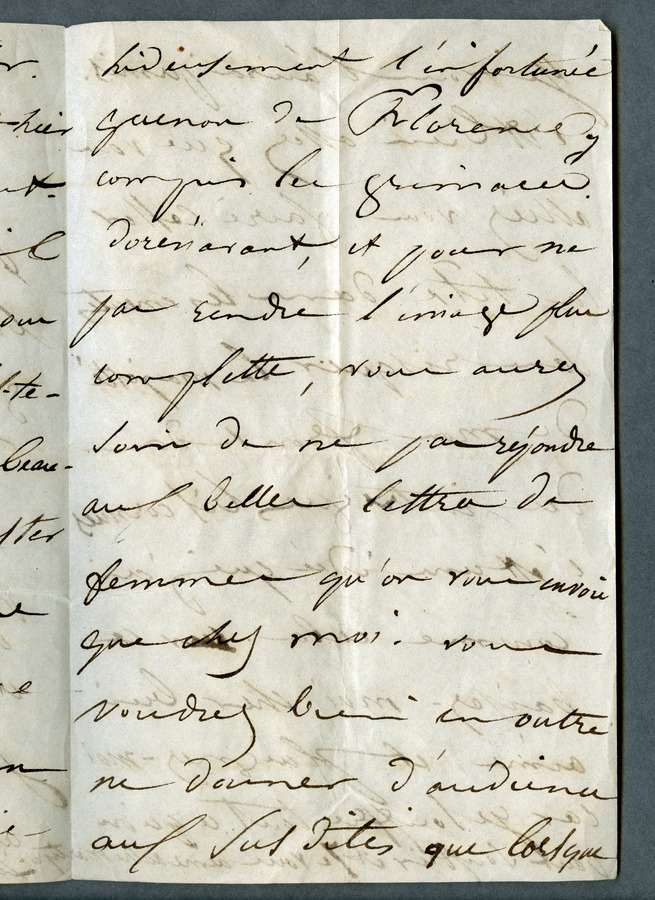 hideusement l'infortunée
guenon de Florence y
compris les grimaces.
dorénavant, et pour ne
pas rendre l'image plus
complette, vous aurez
soin de ne pas répondre
aux belles lettres de
femmes qu'on vous envoie
que chez moi. vous
voudrez bien en outre
ne donner d'audience
aux sus dites que lorsque